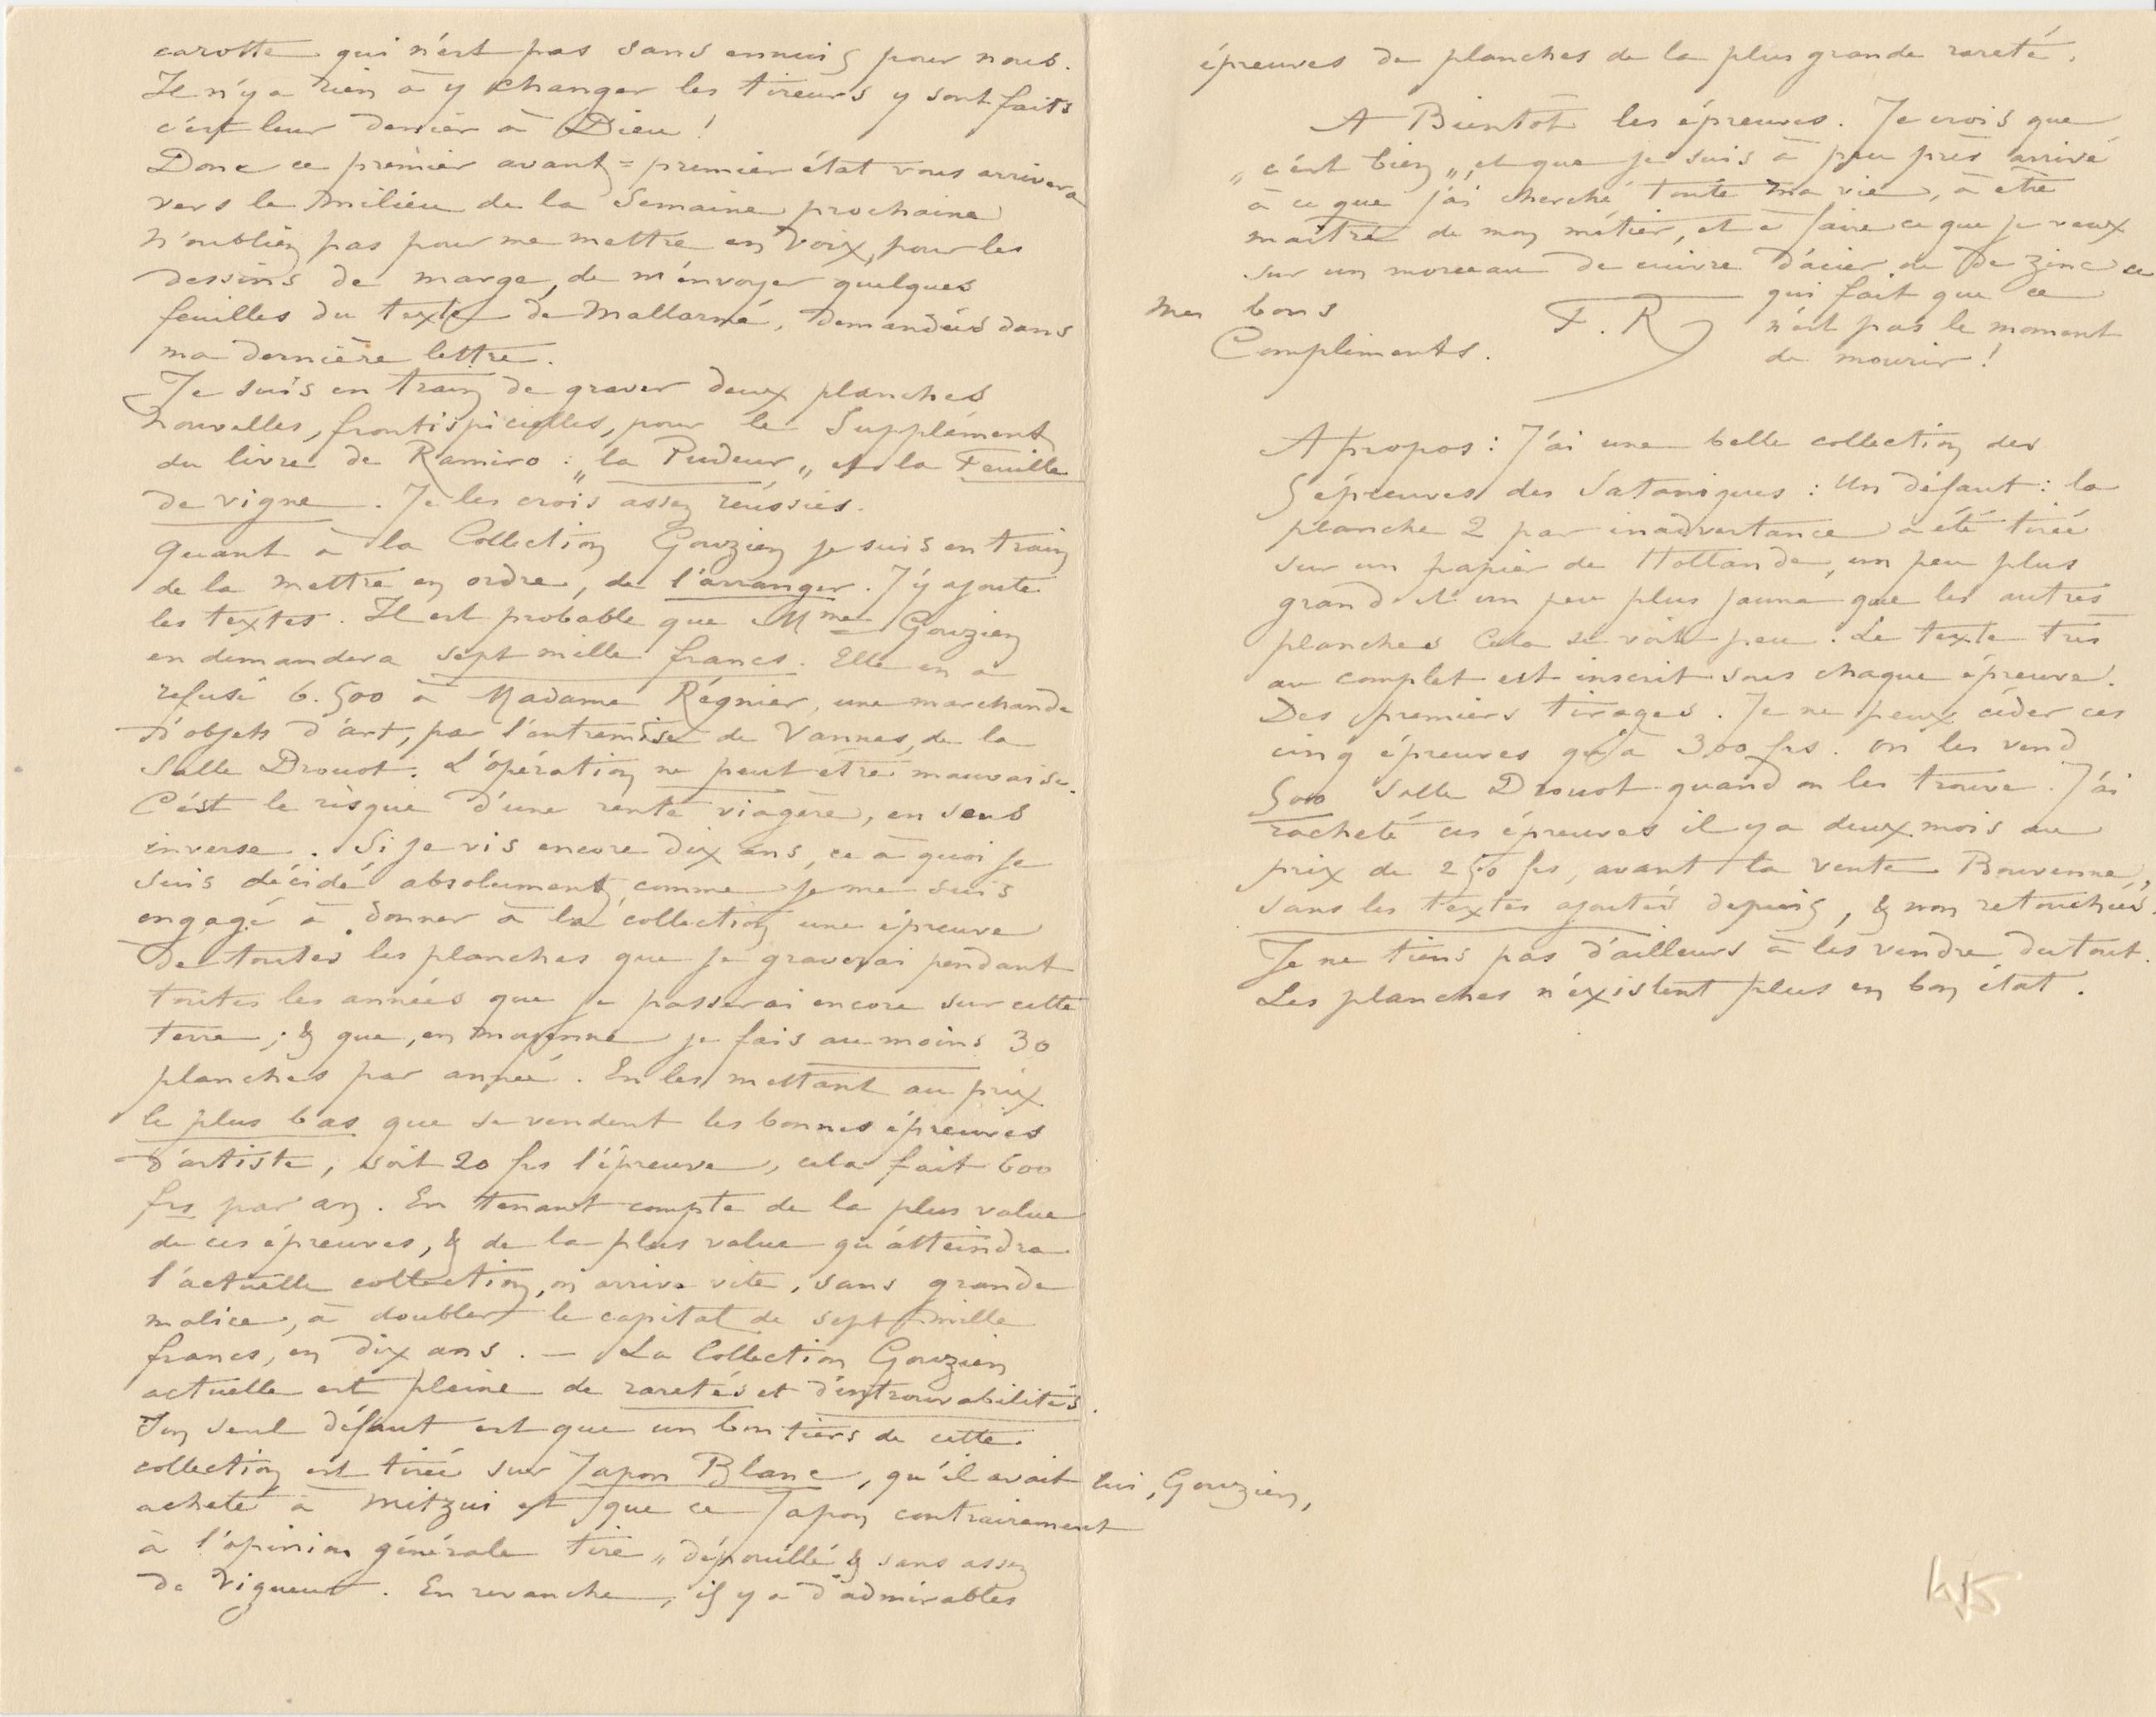 carotte qui n'est pas sans ennuis pour nous.
Il n'y a rien à y changer les tireurs y sont faits
c'est leur denier à Dieu !
Donc ce premier avant-premier état vous arrivera
vers le milieu de la semaine prochaine
N'oubliez pas pour me mettre en voix, pour les
dessins de marge, de m'envoyer quelques
feuilles du texte de Mallarmé, demandées dans
ma dernière lettre.
Je suis en train de graver deux planches
nouvelles, frontispicielles, pour le Supplément
du livre de Ramiro : „la Pudeur„ et la Feuille
de vigne. Je les crois assez réussies.
Quant à la Collection Gouzien je suis en train
de la mettre en ordre, de l'arranger. J'y ajoute
les textes. Il est probable que Mme Gouzien
en demandera sept mille francs. Elle en a
refusé 6.500 à Madame Régnier, une marchande
d'objets d'art, par l'entremise de Vannes, de la
Salle Drouot. L'opération ne peut être mauvaise.
C'est le risque d'une rente viagère, en sens
inverse. Si je vis encore dix ans, ce à quoi je
suis décidé absolument, comme je me suis
engagé à donner à la collection une épreuve
de toutes les planches que je graverai pendant
toutes les années que je passerai encore sur cette
terre ; & que, en moyenne je fais au moins 30
planches par année. En les mettant au prix
le plus bas que se vendent les bonnes épreuves
d'artiste, soit 20 frs l'épreuve, cela fait 600
frs par an. En tenant compte de la plus value
de ces épreuves, & de la plus value qu'atteindra
l'actuelle collection, on arrive vite, sans grande
malice, à doubler le capital de sept mille
francs, en dix ans. — La Collection Gouzien
actuelle est pleine de raretés et d'introuvabilités.
Son seul défaut est que un bon tiers de cette
collection est tirée sur Japon Blanc, qu'il avait lui, Gouzien,
acheté à Mitzui et que ce Japon contrairement
à l'opinion générale tire „dépouillé & sans assez
de vigueur. En revanche, il y a d'admirables
épreuves de planches de la plus grande rareté.
A Bientôt les épreuves. Je crois que
„c'est bien„, et que je suis à peu près arrivé
à ce que j'ai cherché toute ma vie, à être
maître de mon métier, et à faire ce que je veux
sur un morceau de cuivre d'acier ou de zinc ce
qui fait que ce
n'est pas le moment
de mourir !
Mes bons
Compliments.
F. R
A propos : J'ai une belle collection des
5 épreuves des Sataniques : Un défaut : la
planche 2 par inadvertance a été tirée
sur un papier de Hollande, un peu plus
grand et un peu plus jaune que les autres
planches Cela se voit peu. Le texte très
au complet est inscrit sous chaque épreuve.
Des premiers tirages. Je ne peux céder ces
cinq épreuves qu'à 300 frs. On les vend
500 Salle Drouot quand on les trouve. J'ai
racheté ces épreuves il y a deux mois au
prix de 250 frs, avant la vente Bouvenne,
sans les textes ajoutés depuis, & non retouchées.
Je ne tiens pas d'ailleurs à les vendre du tout.
Les planches n'existent plus en bon état.